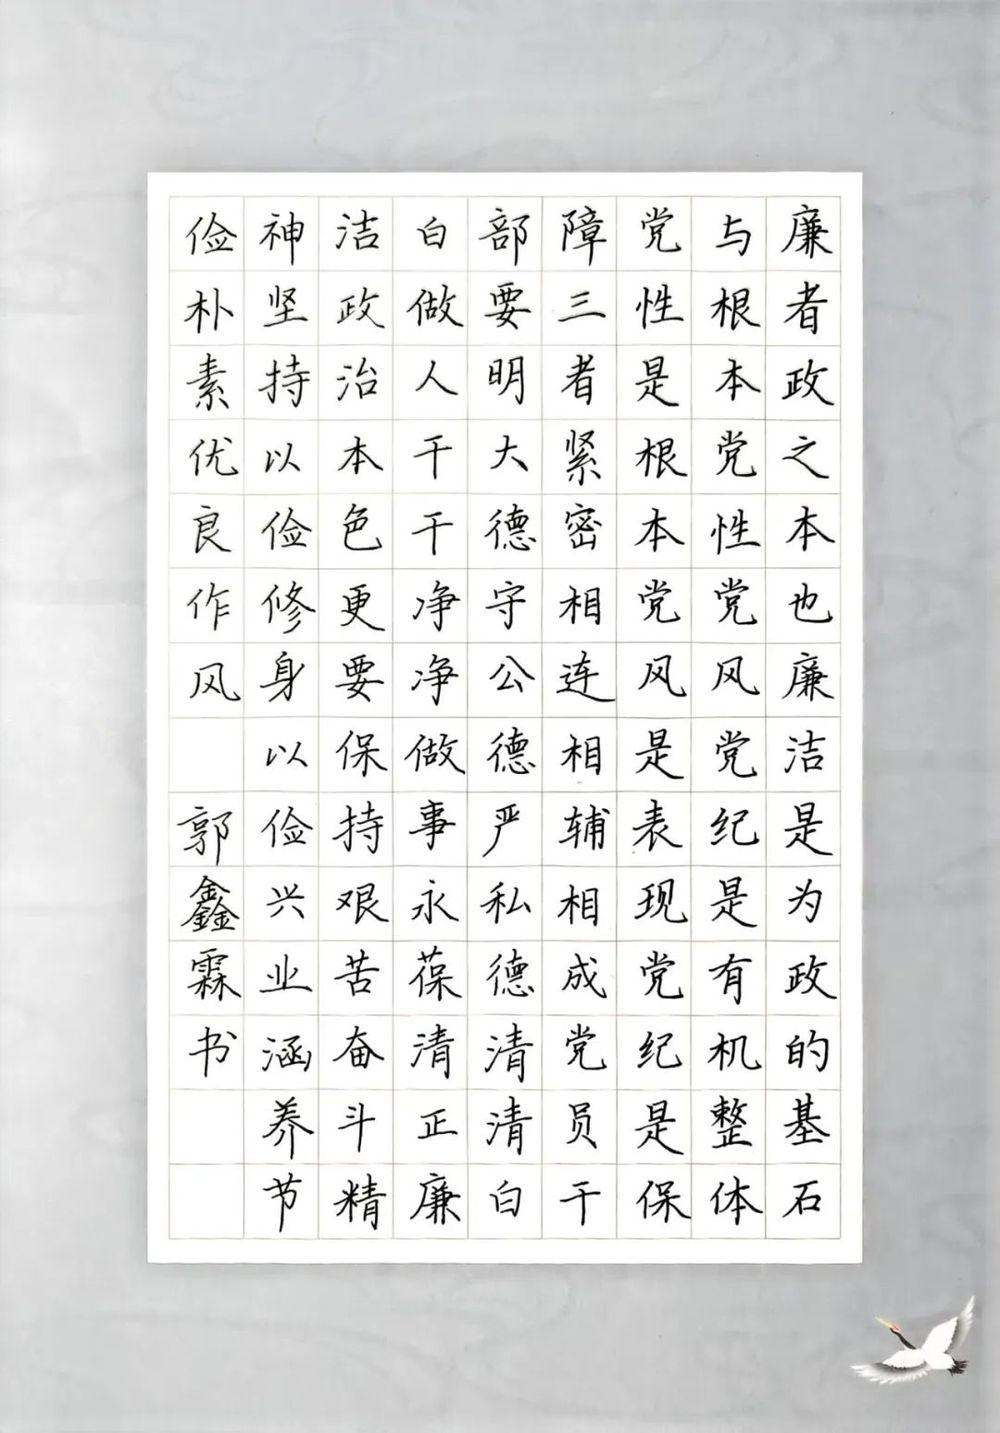 廉者政之本也廉洁是为政的基石
与根本党性党风党纪是有机整体
党性是根本党风是表现党纪是保
障三者紧密相连相辅相成党员干
部要明大德守公德严私德清清白
白做人干干净净做事永葆清正廉
洁政治本色更要保持艰苦奋斗精
神坚持以俭修身以俭兴业涵养节
俭朴素优良作风 郭鑫霖书